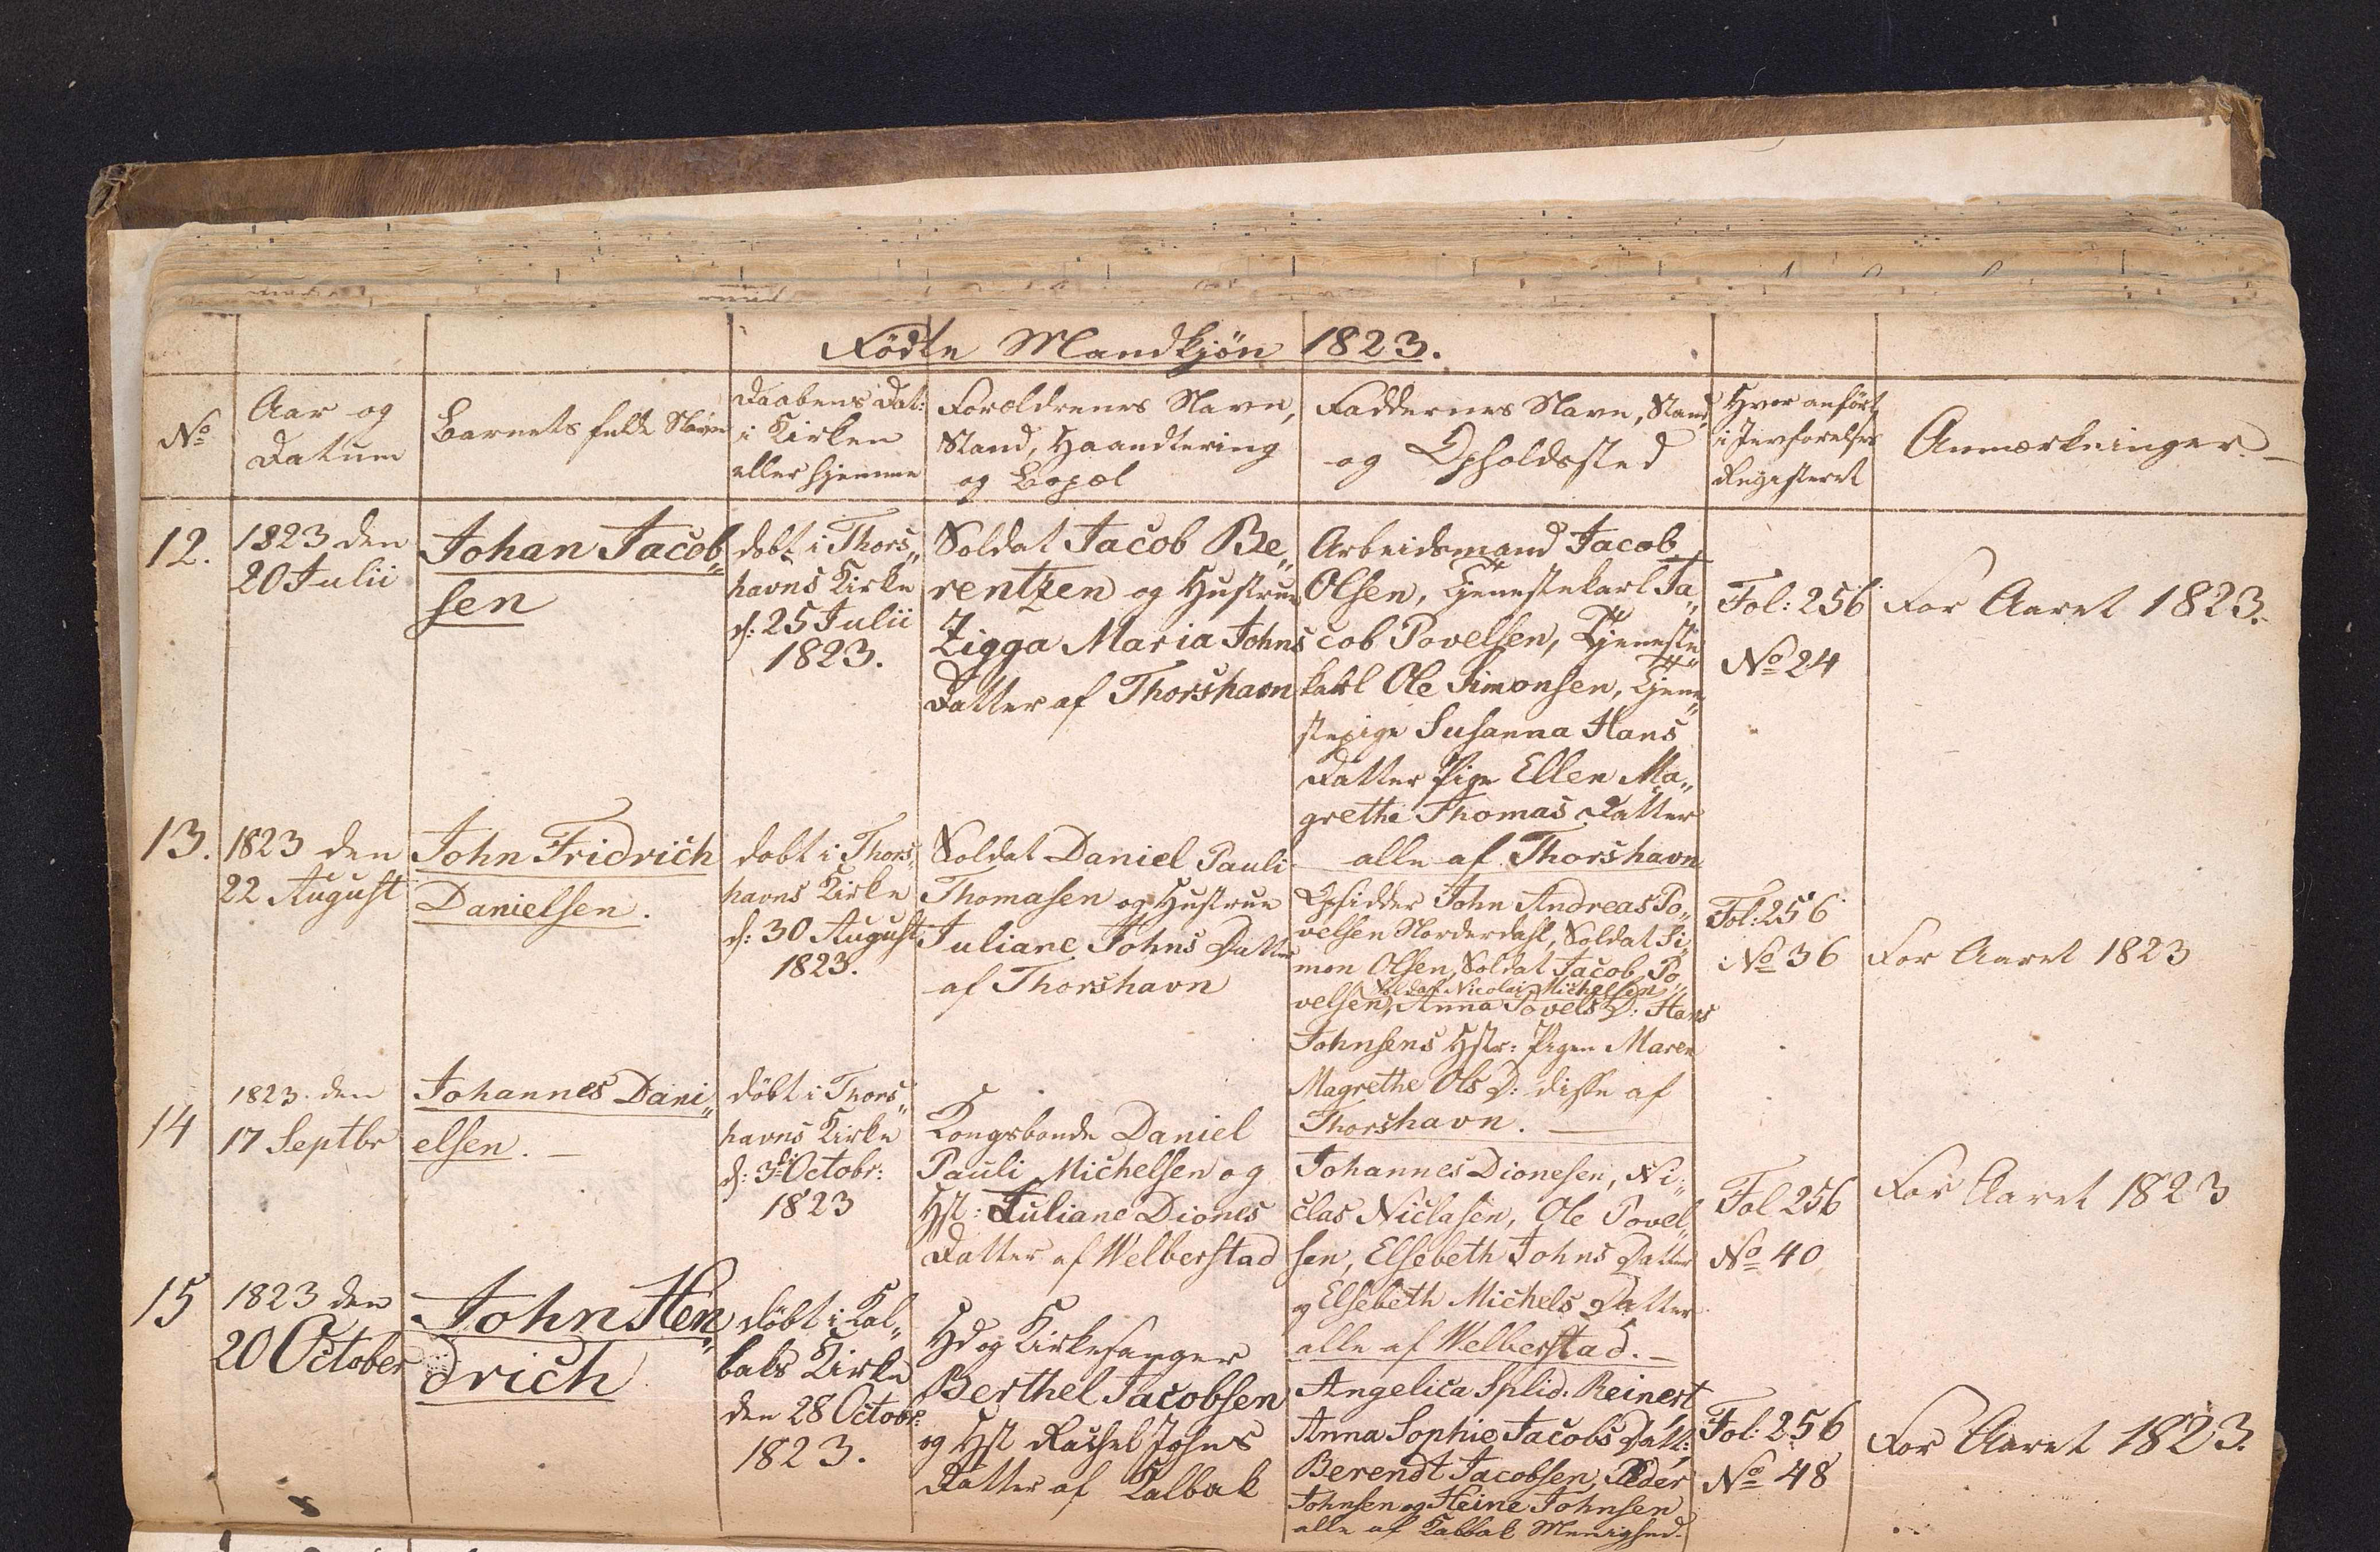 Fødte Mandkjøn 1823.
No
Aar og
Datum
Barnets fulde Navn
Daabens Dat:
i Kirken
eller hjemme
Forældrenes Navn,
Stand, Haandtering
og Bopæl
Faddernes Navn, Stand
og Opholdssted
Hvor anført
i Jevnførelses
Registeret
Anmærkninger.
12.
1823 den
20 Julii
Johan Jacob„
sen
døbt i Thors„
havns Kirke
d: 25 Julii
1823.
Soldat Jacob Be„
rentzen og Hustrue
Zigga Maria Johns
Datter af Thorshavn
Arbeidsmand Jacob
Olsen, Tjenestekarl Ja„
cob Povelsen, Tjeneste„
karl Ole Simonsen, Tjene„
stepige Susanna Hans
Datter Pige Ellen Ma„
grethe Thomas Datter
alle af Thorshavn
Fol: 256
No 24
For Aaret 1823.
13.
1823 den
22 August
John Fridrich
Danielsen.
døbt i Thors„
havns Kirke
d: 30 August
1823.
Soldat Daniel Pauli
Thomasen og Hustrue
Juliane Johns Datter
af Thorshavn
Opsidder John Andreas Po„
velsen Norderdahl, Soldat Si„
mon Olsen, Soldat Jacob Po„
Soldat Nicolai Michelsen
velsen, Anna Povels D: Hans
Johnsens Hstr: Pigen Maren
Magrethe Ols D: disse af
Thorshavn.
Fol: 256
No 36
For Aaret 1823
14
1823 den
17 Septbr
Johannes Dani„
elsen. –
døbt i Thors„
havns Kirke
d: 3die Octobr:
1823
Kongsbonde Daniel
Pauli Michelsen og
Hst: Juliane Diones
Datter af Welberstad
Johannes Dionesen, Ni„
clas Niclasen, Ole Povel„
sen, Elsebeth Johns Datter
og Elsebeth Michels Datter
alle af Welberstad. –
Fol 256
No 40
For Aaret 1823
15
1823 den
20 October
John Hen„
drich
døbt i Kal„
baks Kirke
den 28 Octobr:
1823.
Hd og Kirkesanger
Berthel Jacobsen
og Hst Rachel Johns
Datter af Kalbak
Angelica Splid. Reinert
Anna Sophie Jacobs Datt:
Berendt Jacobsen, Peder
Johnsen og Heine Johnsen
alle af Kalbak Menighed.
Fol: 256
No 48
For Aaret 1823.